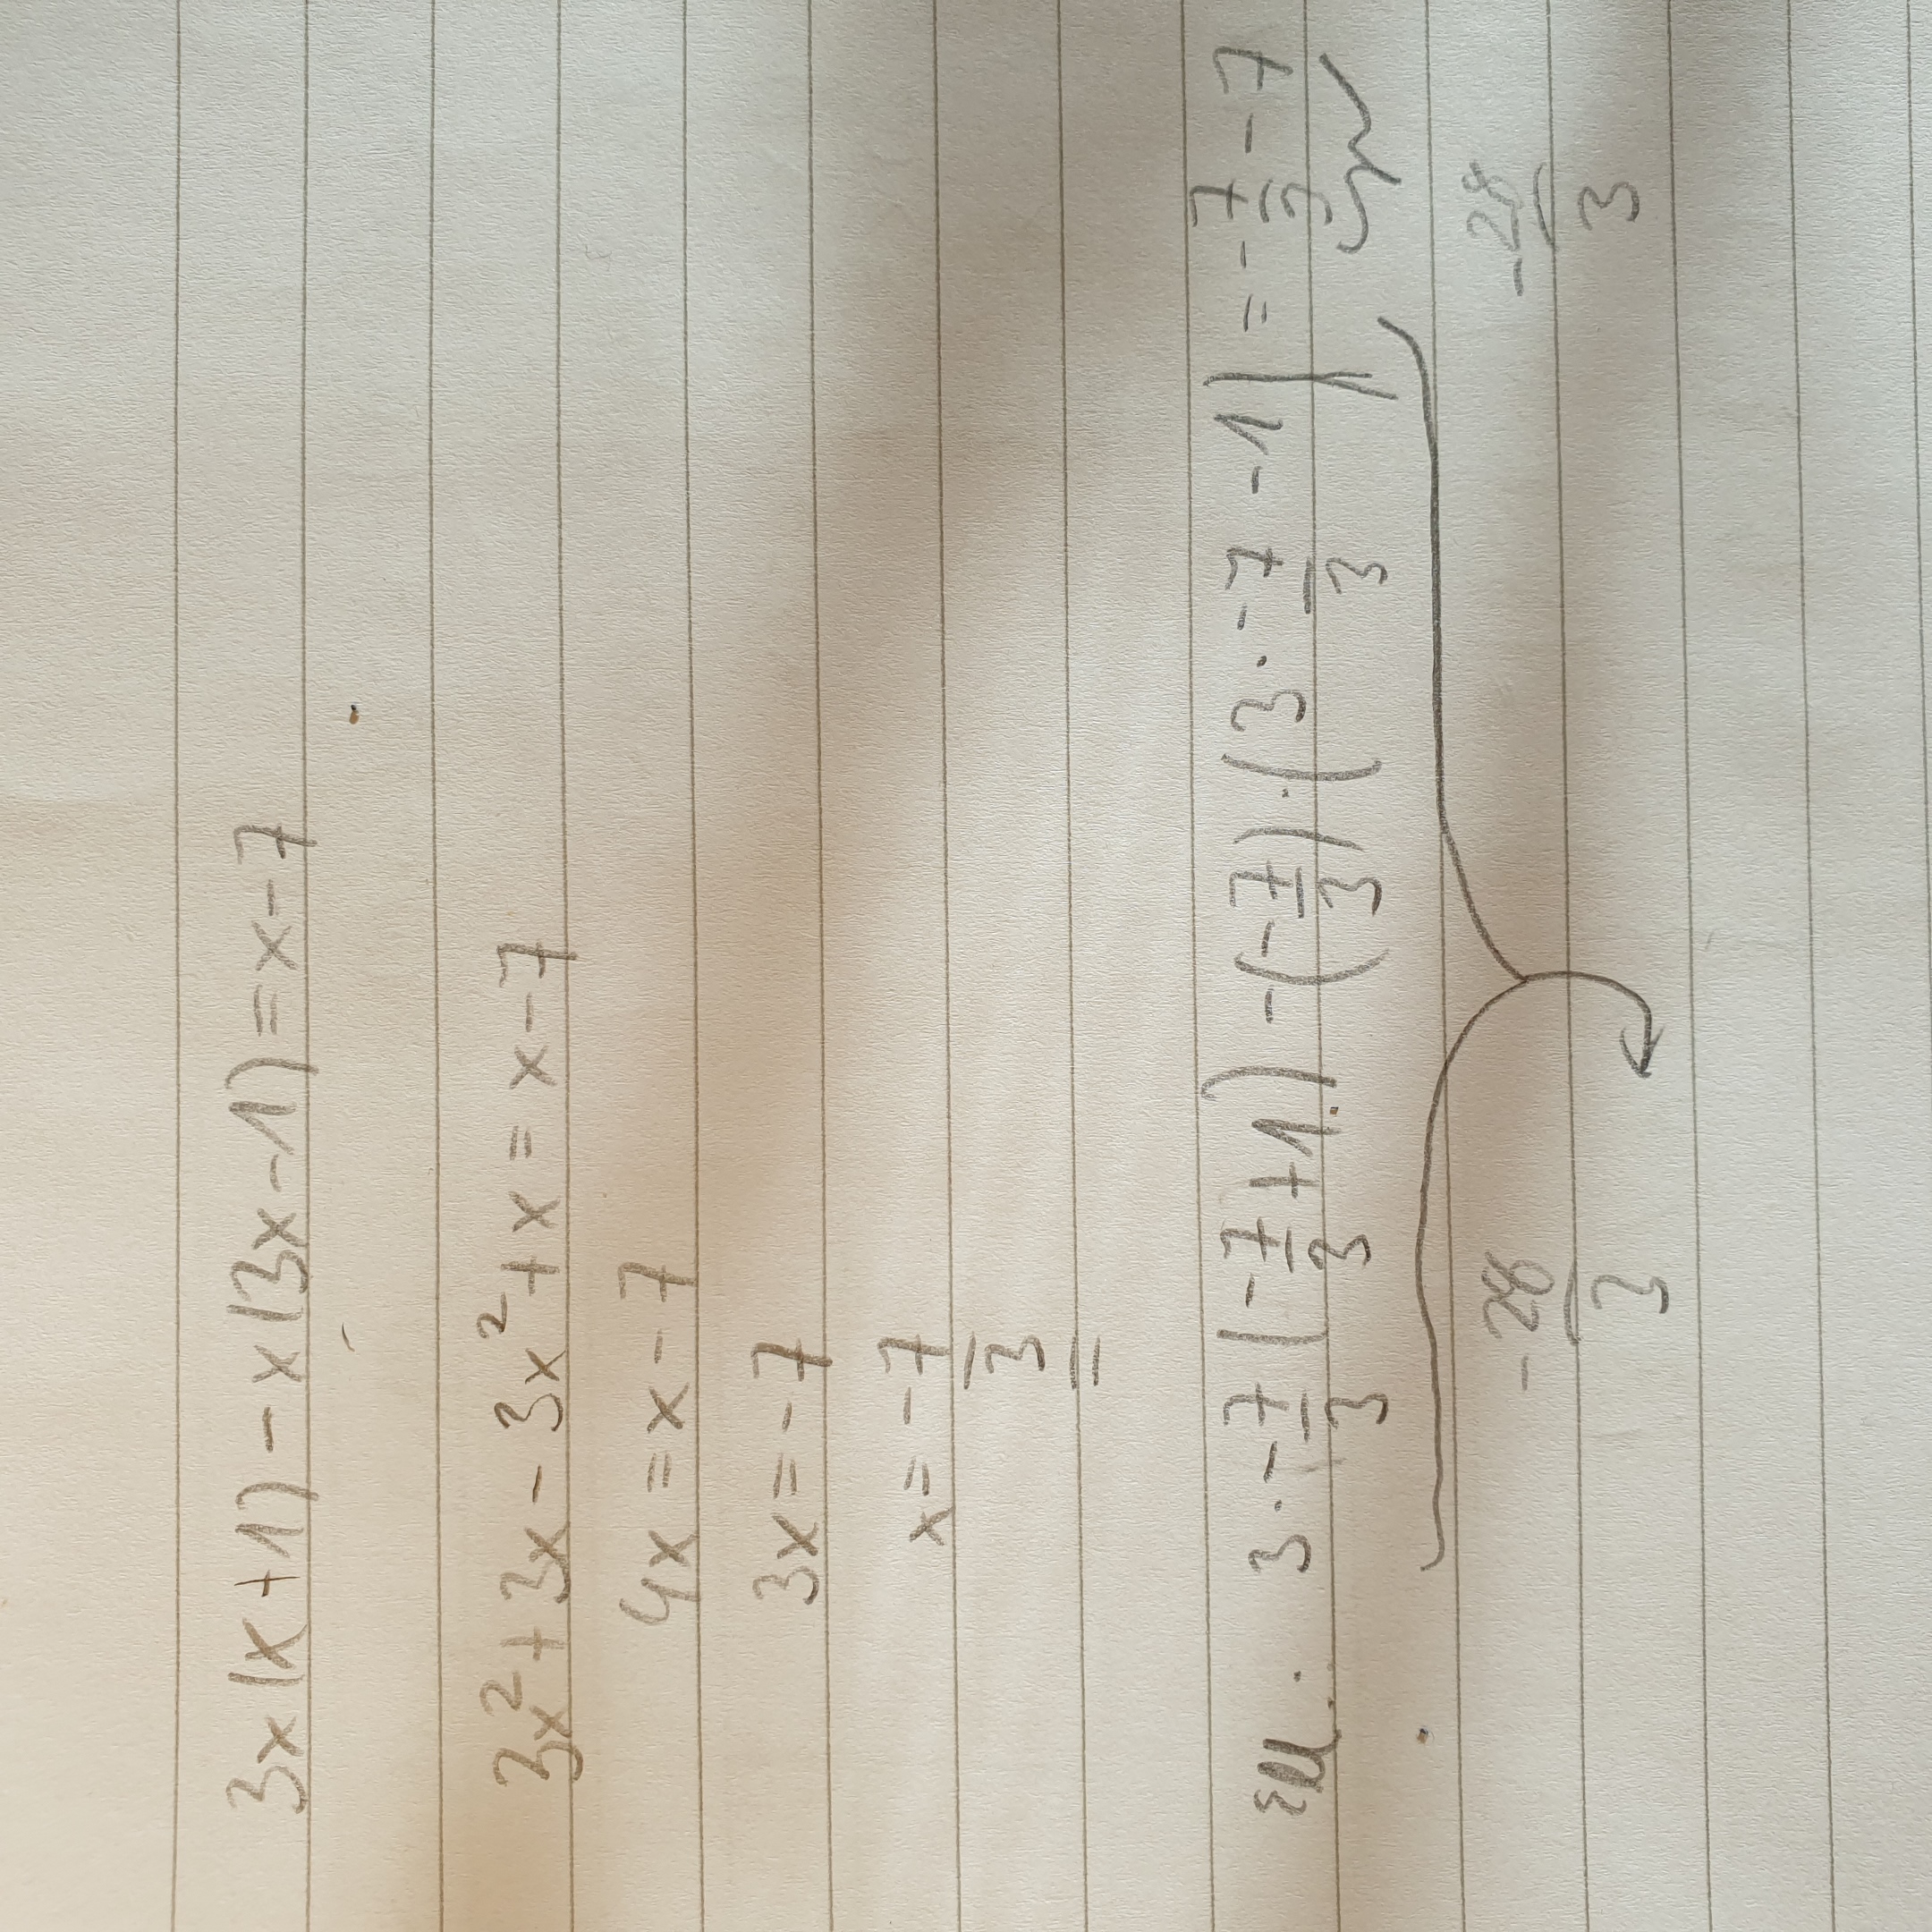 3x(x+1) - x(3x-1) = x-7
3x² + 3x - 3x² + x = x-7
4x = x-7
3x = -7
x = -7/3
3·-7/3(-7/3+1) -(-7/3)·(3·-7/3-1) = -7/3-7
-28/3 -28/3